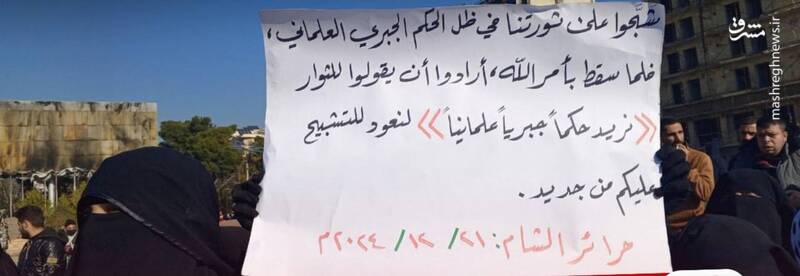 شبَّحوا على ثورتنا في ظل الحكم الجبري العلماني،
فلما سقط بأمر الله، أرادوا أن يقولوا للثوار
《 نريد حكماً جبرياً علمانياً 》 لنعود للتشبيح
عليكم من جديد.
حرائر الشام: ٢١/ ١٢/ ٢٠٢٤م
مشرق
mashreghnews.ir